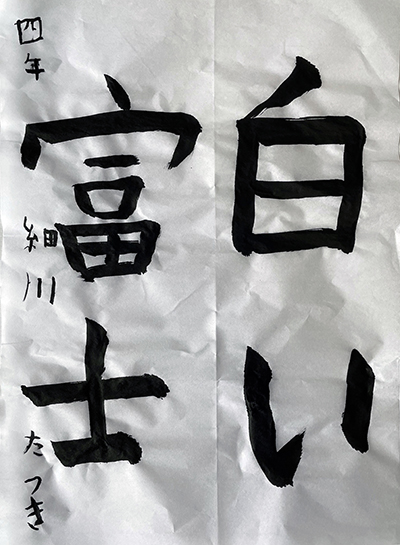 白い
富士
四年 細川 たつき